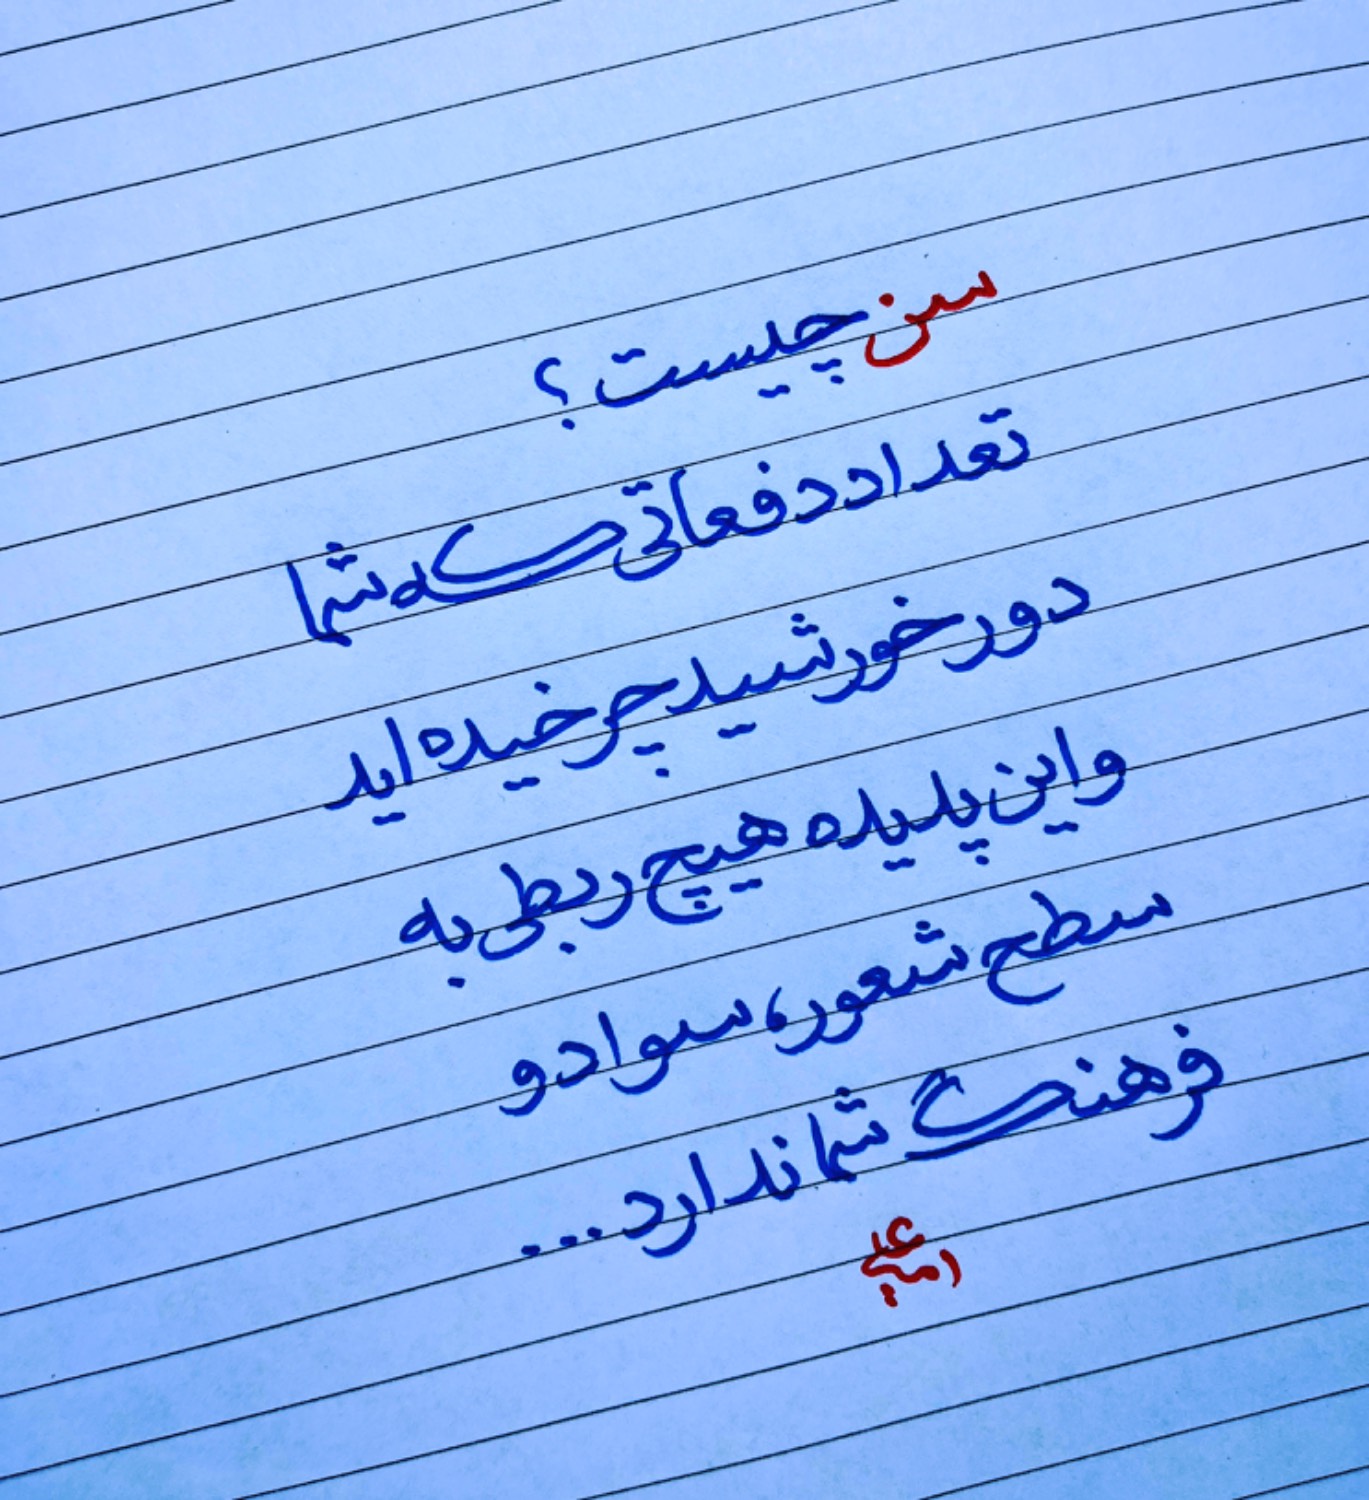 سن چیست؟
تعداد دفعاتی که شما
دور خورشید چرخیده اید
و این پدیده هیچ ربطی به
سطح شعور، سواد و
فرهنگ شما ندارد...